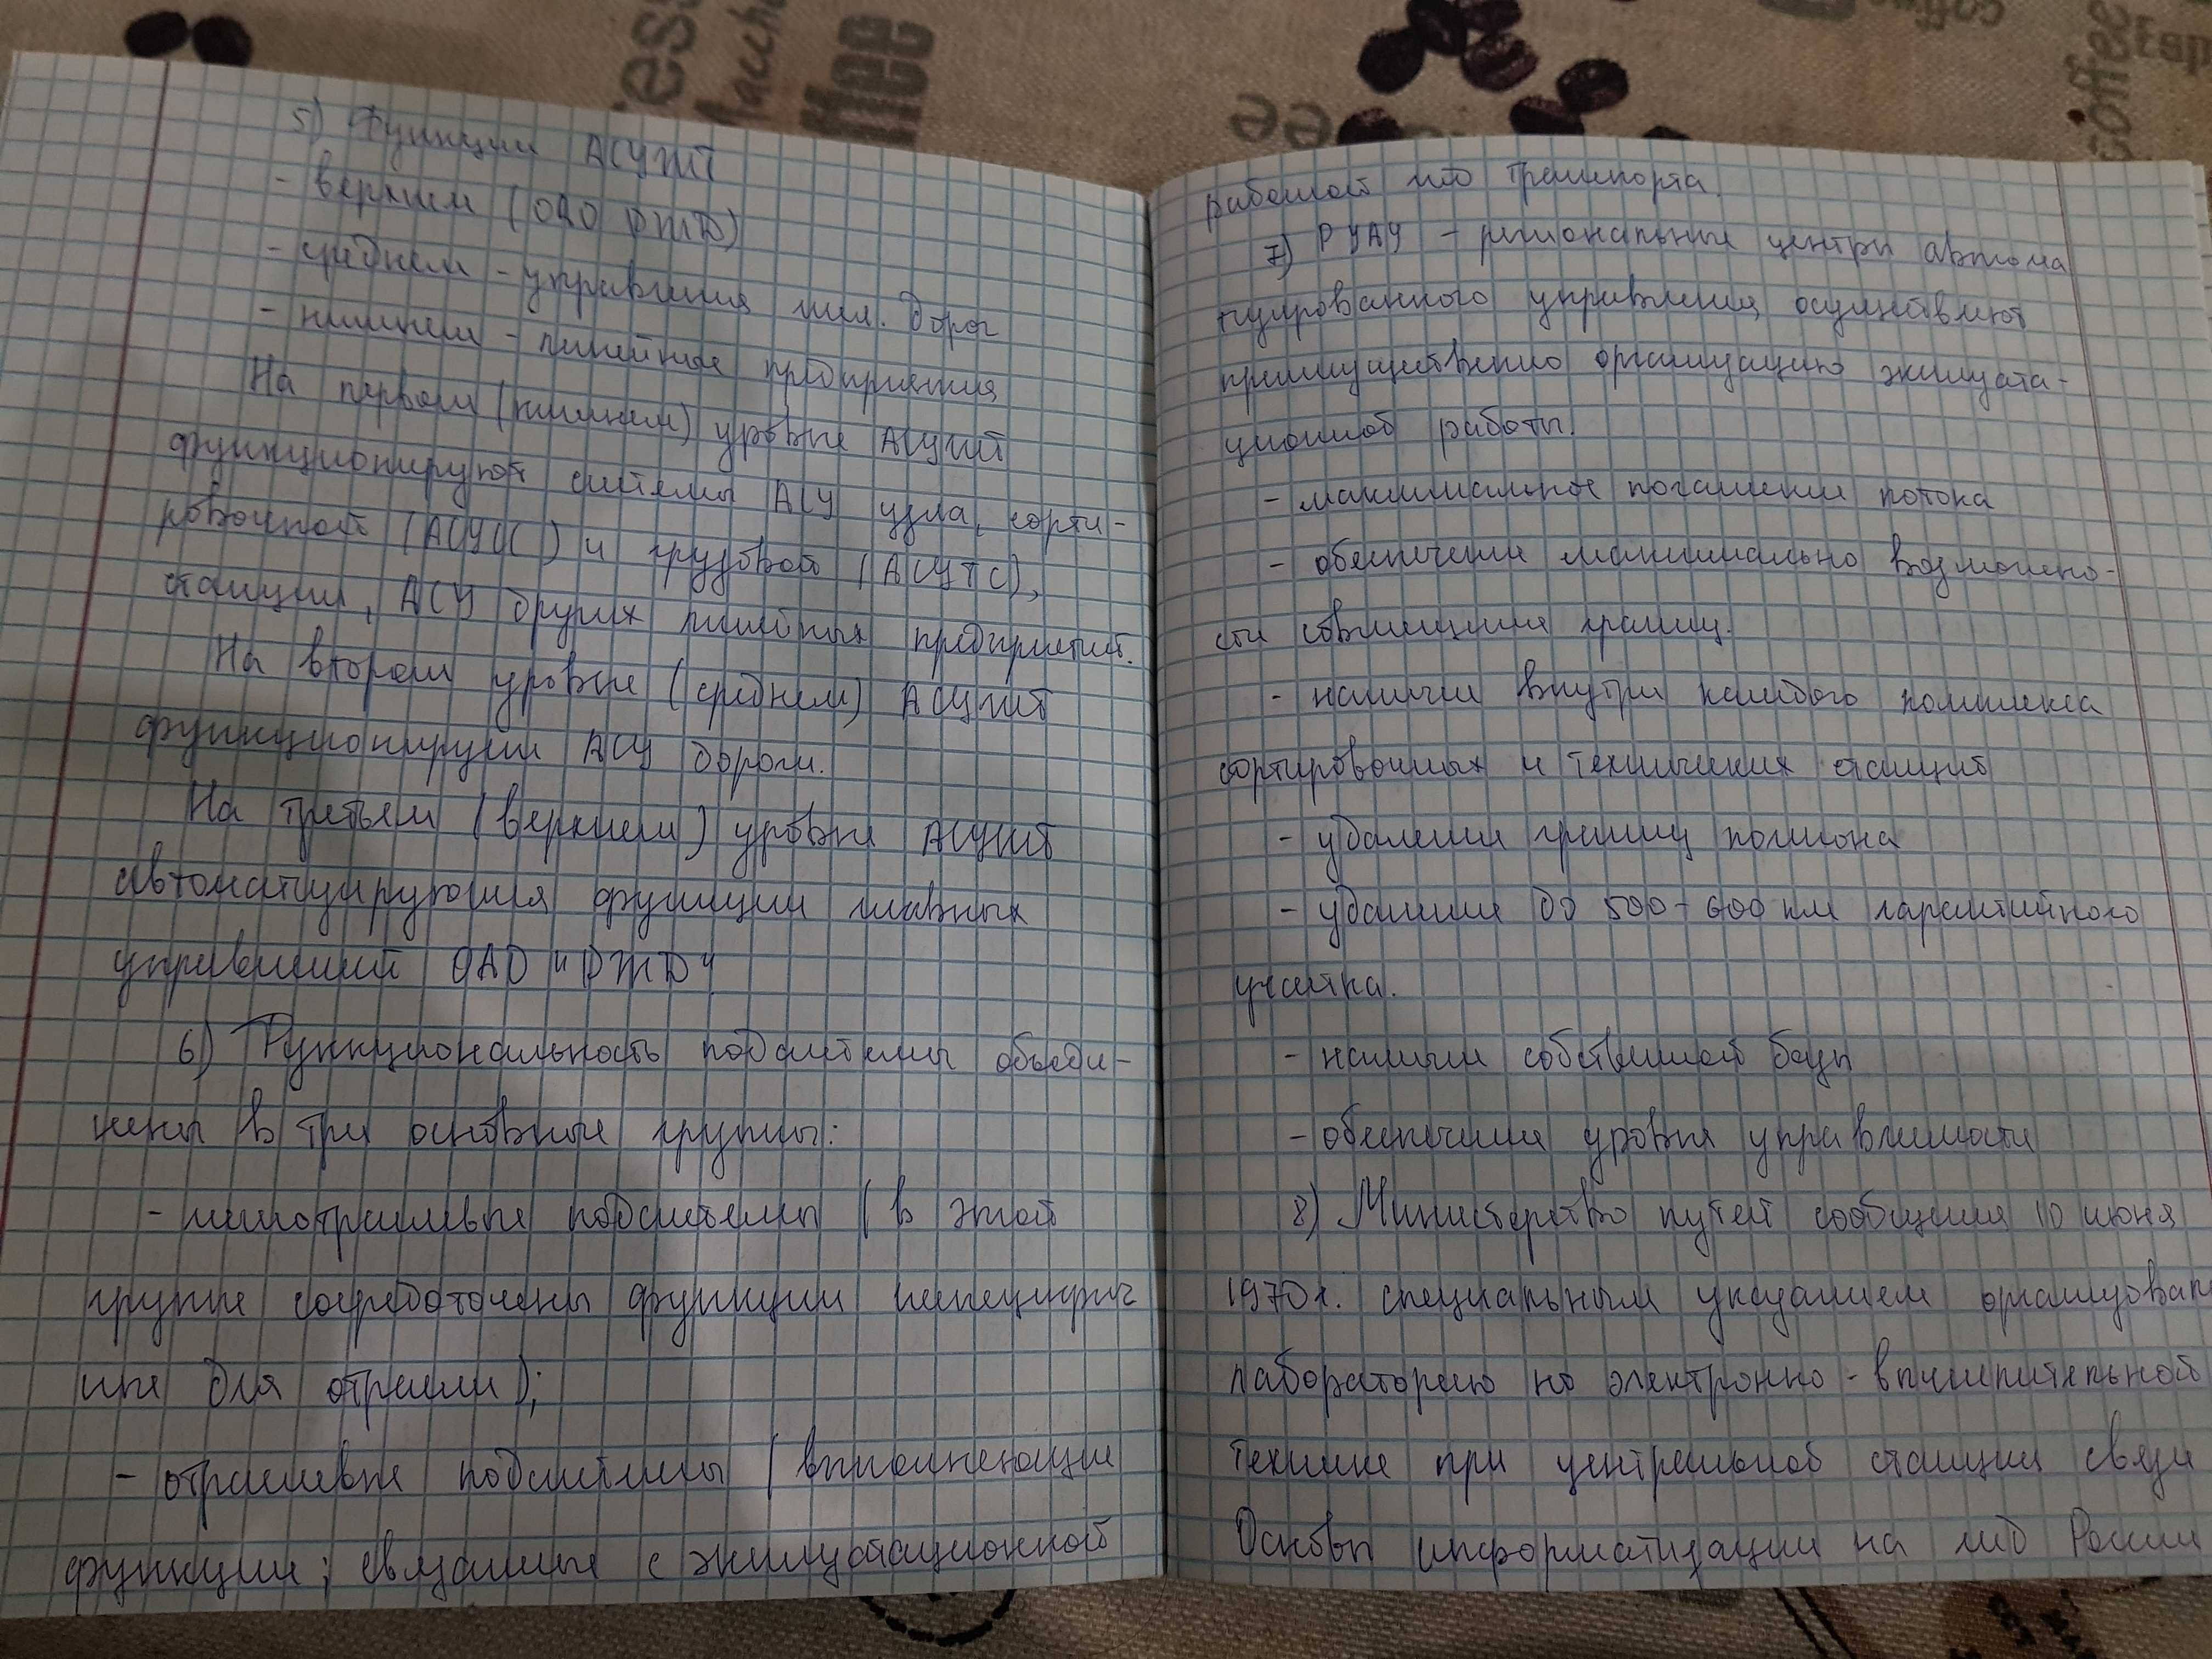 5) Функции АСУЖТ
- верхнем (ОАО РЖД)
- среднем - управления жел. дорог
- нижнем - линейные предприятия
На первом (нижнем) уровне АСУЖТ
функционируют системы АСУ узла, сорти-
ровочной (АСУСС) и грузовой (АСУГС),
станции, АСУ других линейных предприятий.
На втором уровне (среднем) АСУЖТ
функционируют АСУ дороги.
На третьем (верхнем) уровне АСУЖТ
автоматизируются функции главных
управлений ОАО "РЖД"
6) Функциональность подсистемы объеди-
нены в три основные группы:
- подсистемы (в этой
группе сосредоточены функции
для отрасли);
- отраслевые подсистемы (выполняющие
функции; связанные с эксплуатационной
работой жд транспорта.
7) РЦАУ - региональные центры автома
тизированного управления осуществляют
преимущественно организацию эксплуата-
ционной работы.
- максимальное погашение потока
- обеспечение максимально возможно-
сти совмещения границ.
- наличие внутри каждого комплекса
сортировочных и технических станций
- удаление границ полигона
- удаление до 500-600 км гарантийного
участка.
- наличие собственной базы
- обеспечение уровня управляемости
8) Министерство путей сообщения 10 июня
1970г. специальным указанием организовал
лабораторию по электронно-вычислительной
технике при центральной станции связи
Основы информатизации на жд России